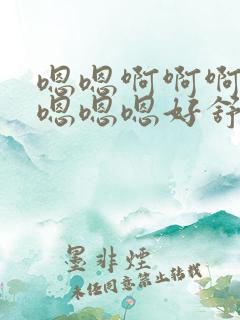 嗯嗯啊啊啊
嗯嗯嗯好舒
墨非煙
未经同意禁止转载